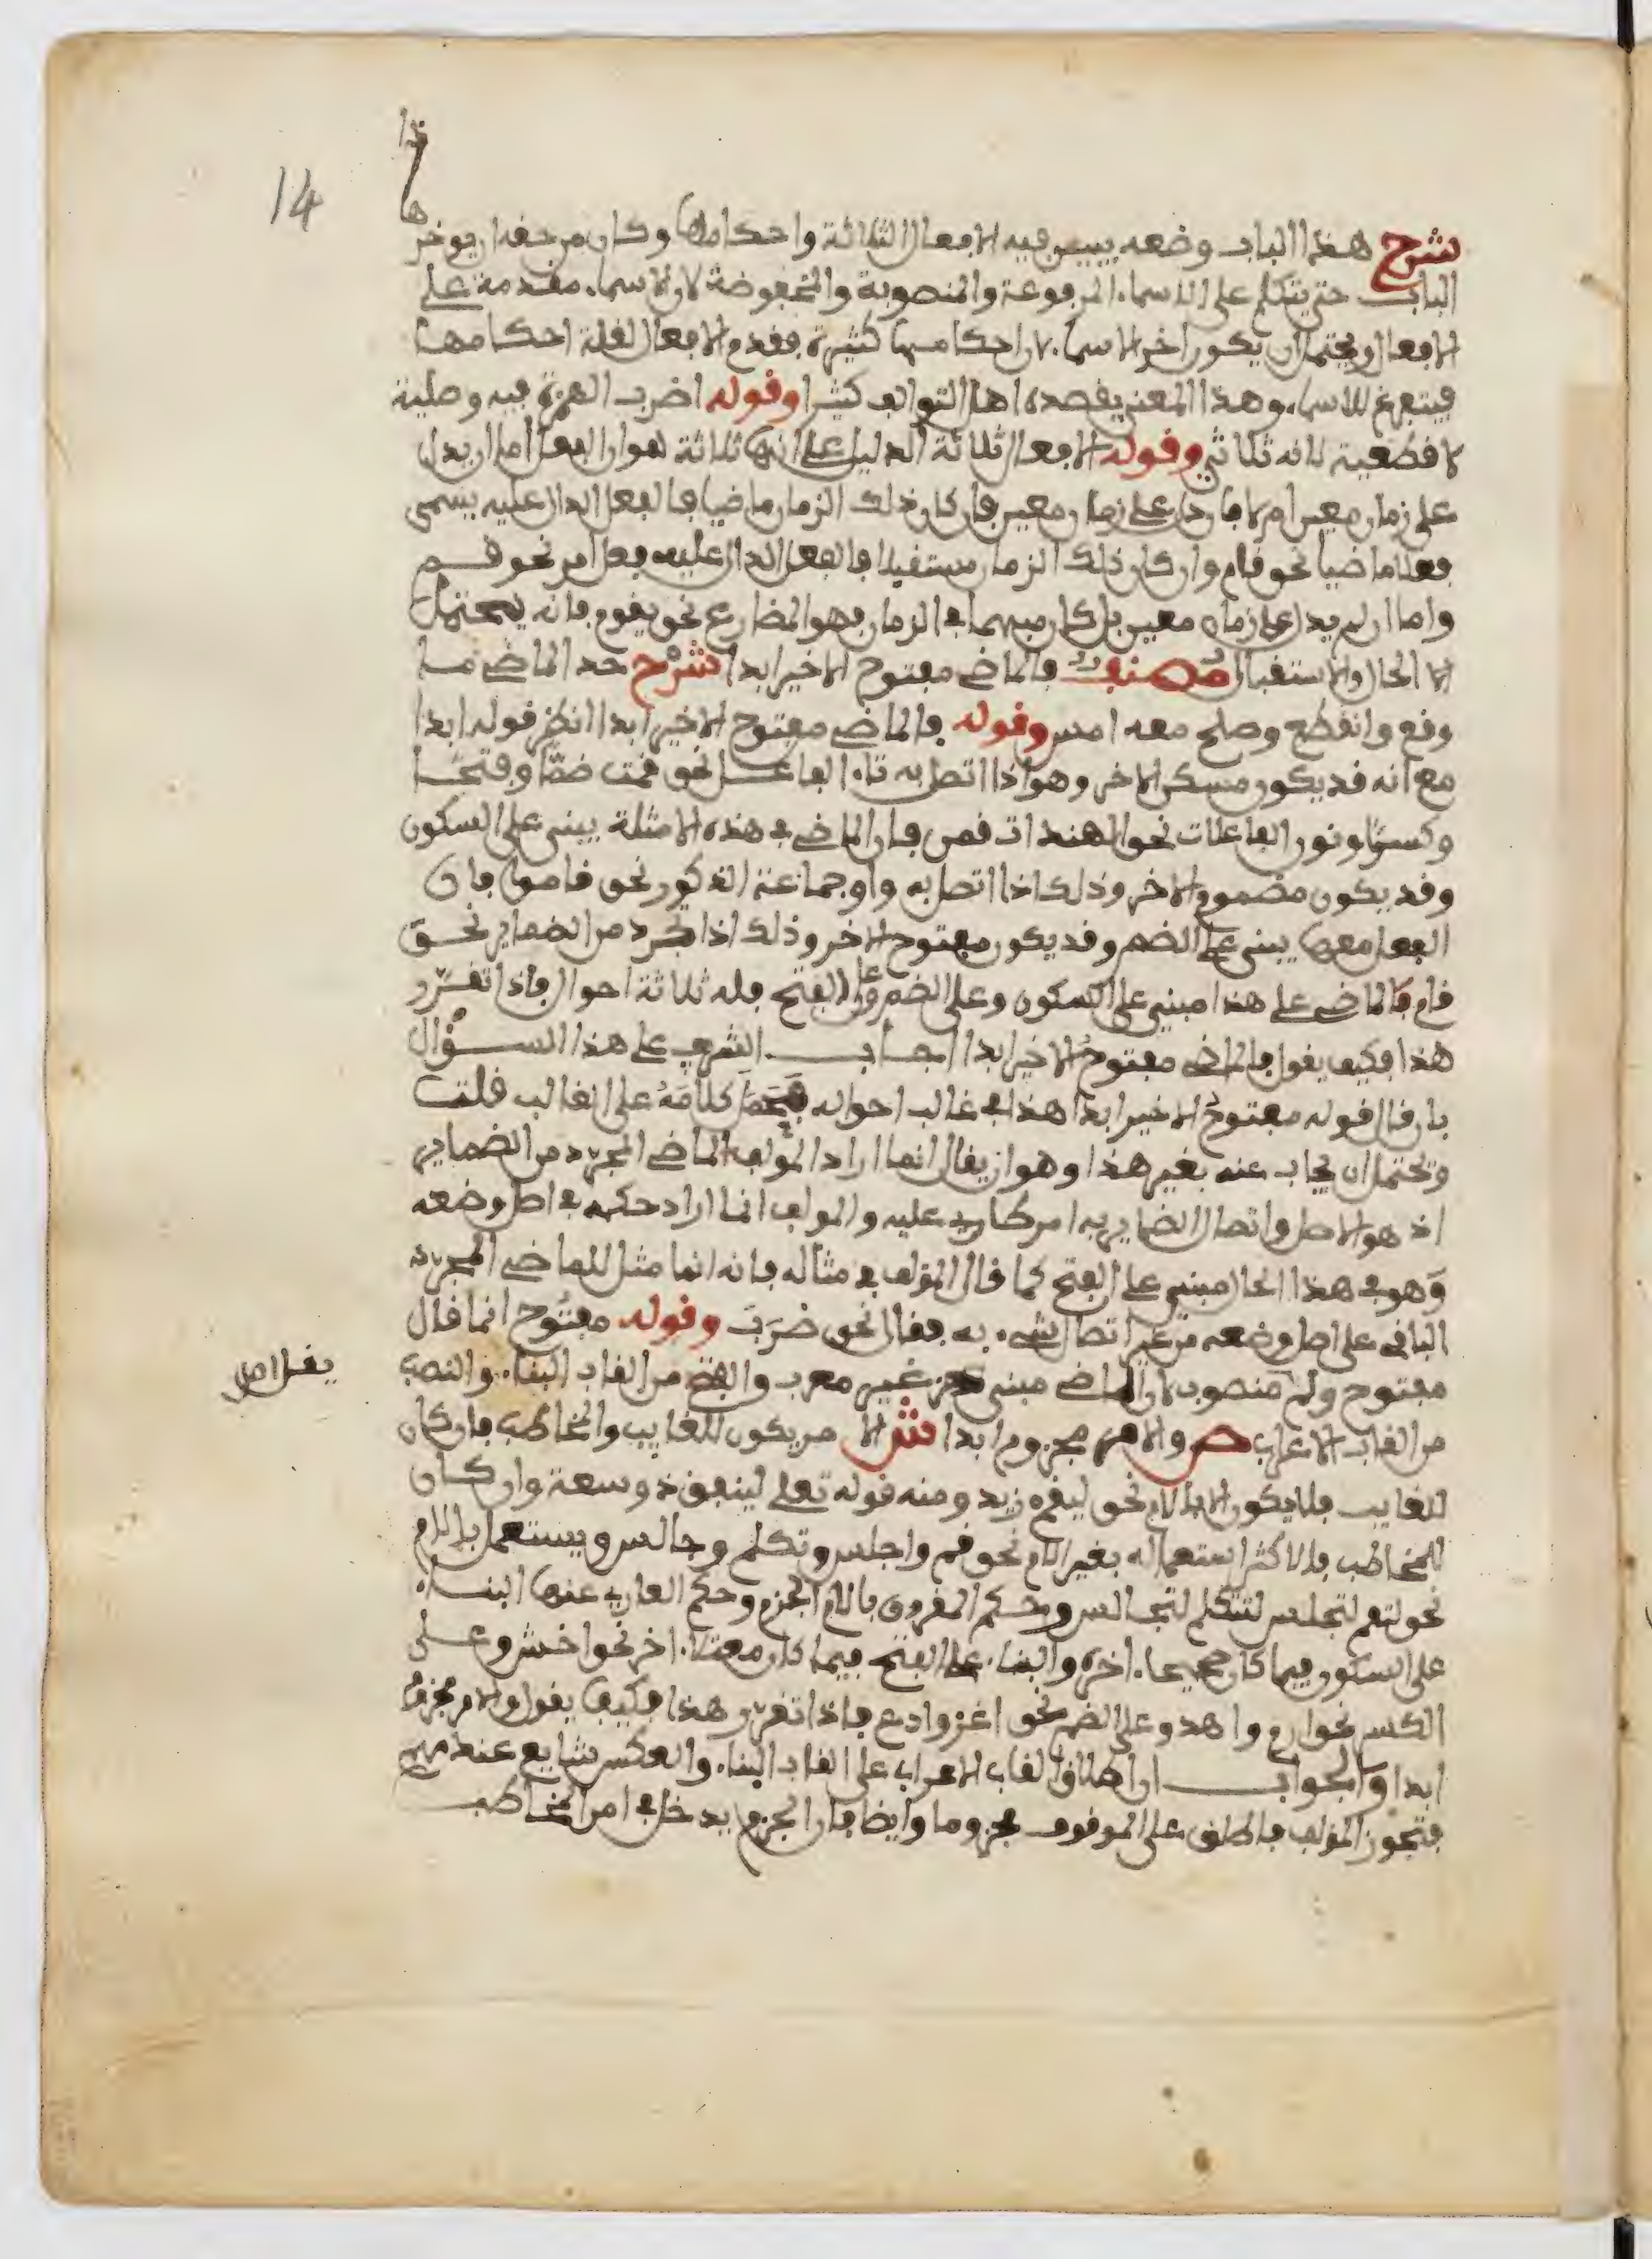 14
هذا
شرح هذا الباب وضعه يبين فيه الافعال الثلاثة واحكامها وكان من حقه ان يوخر
الباب حتى يتكلم على الاسماء المرفوعة والمنصوبة والمخفوضة لان الاسماء مقدمة على
الافعال ويحتمل ان يكون اخر الاسماء لان احكامها كثيرة فقدم الافعال لقلة احكامها
فيتفرغ للاسماء وهذا المعنى يقصده اهل التواليف كثيرا وقوله اضرب الهمزة فيه وصلية
لا قطعية لانه ثلاثي وقوله الافعال ثلاثة الدليل على انها ثلاثة هو ان الفعل اما ان يدل
على زمان معين ام لا فان دل على زمان معين فان كان ذلك الزمان ماضيا فالفعل الدال عليه يسمى
فعلا ماضيا نحو قام وان كان ذلك الزمان مستقبلا فالفعل الدال عليه فعل امر نحو قم
واما ان لم يدل على زمان معين بل كان مبهما في الزمان فهو المضارع نحو يقوم فانه يحتمل
الحال والاستقبال مصنف فالماضي مفتوح الاخير ابدا شرح حد الماضي ما
وقع وانقطع وصلح معه امس وقوله فالماضي مفتوح الاخير ابدا انظر قوله ابدا
مع انه قد يكون مسكن الاخر وهو اذا اتصل به تاء الفاعل نحو قمت ضمّا وفتحا
وكسرًا ونون الفاعلات نحو الهندات قمن فان الماضي في هذه الامثلة يبنى على السكون
وقد يكون مضموم الاخر وذلك اذا اتصل به واو جماعة الذكور نحو قاموا فان
الفعل معها يبنى على الضم وقد يكون مفتوح الاخر وذلك اذا تجرد من الضماير نحو
قام فالماضي على هذا مبني على السكون وعلى الضم وعلى الفتح فله ثلاثة احوال فاذا تقرّر
هذا فكيف يقول فالماضي مفتوح الاخير ابدا اجاب الشريف على هذا السؤال
بان قال قوله مفتوح الاخير ابدا هذا في غالب احواله فَحَمَلَ كلامَهُ على الغالب قلت
ويحتمل ان يجاب عنه بغير هذا وهو ان يقال انما اراد المؤلف الماضي المجرد من الضماير
اذ هو الاصل واتصال الضماير به امر طارئ عليه والمولف انما اراد حكمه في اصل وضعه
وَهو في هذا الحال مبني على الفتح كما قال المؤلف في مثاله فانه انما مثل للماضي المجرد
الباقي على اصل وضعه من غير اتصال شيء به فقال نحو ضرَبَ وقوله مفتُوح انما قال
مفتوح ولم يقل منصوب لان الماضي مبني غير معرب والفتح من القاب البناء والنصب
يقل اصل
من القاب الاعراب ص والامر مجزوم ابدا ش الامر يكون للغايب والمخاطب فان كان
للغايب فلا يكون الا بالام نحو ليقم زيد ومنه قوله تعلى لينفق ذو سعة وان كان
للمخاطب فالاكثر استعماله بغير لام نحو قم واجلس وتكلم وجالس ويستعمل بالام
نحو لتقم لتجلس لتتكلم لتجالس وحكم المقرون بالام الجزم وحكم العاري عنها البناء
على السكون فيما كان صحيحا اخره والبناء على الفتح فيما كان معتلا اخره نحو اخش وعلى
الكسر نحو ارم واهد وعلى الضم نحو اغز وادع فاذا تقرر هذا فكيف يقول والامر مجزوم
ابدا والجواب ان اطلاق القاب الاعراب على القاب البناء والعكس شايع عندهم
فتجوز المؤلف فاطلق على الموقوف مجزوما وايضا فان الجزم يدخل في امر المخاطب